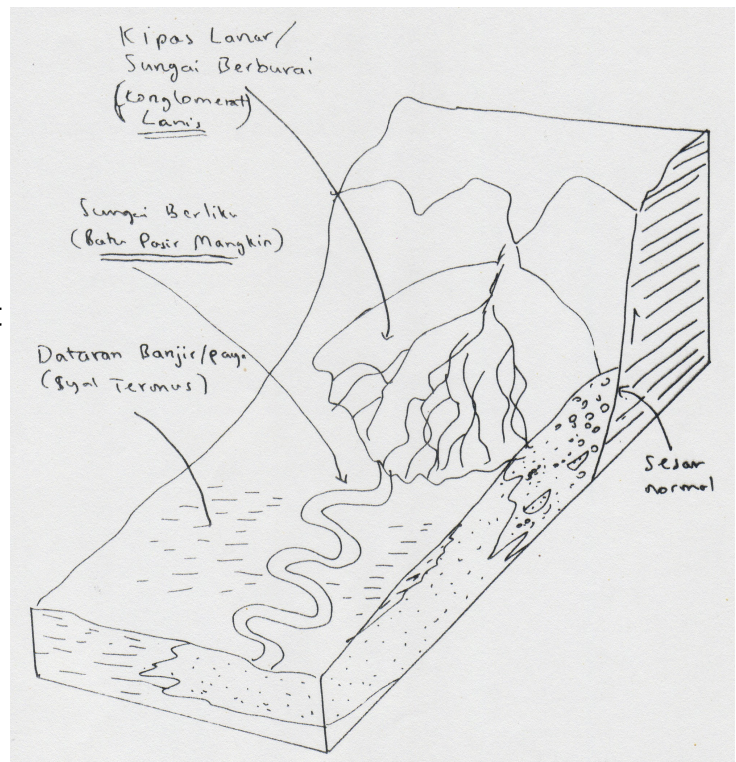 Kipas Lanar/
Sungai Berburai
(Konglomerat)
Lanis
Sungai Berliku
(Batu Pasir Mangkin)
Dataran Banjir/paya
(Syal Termus)
Sesar
normal